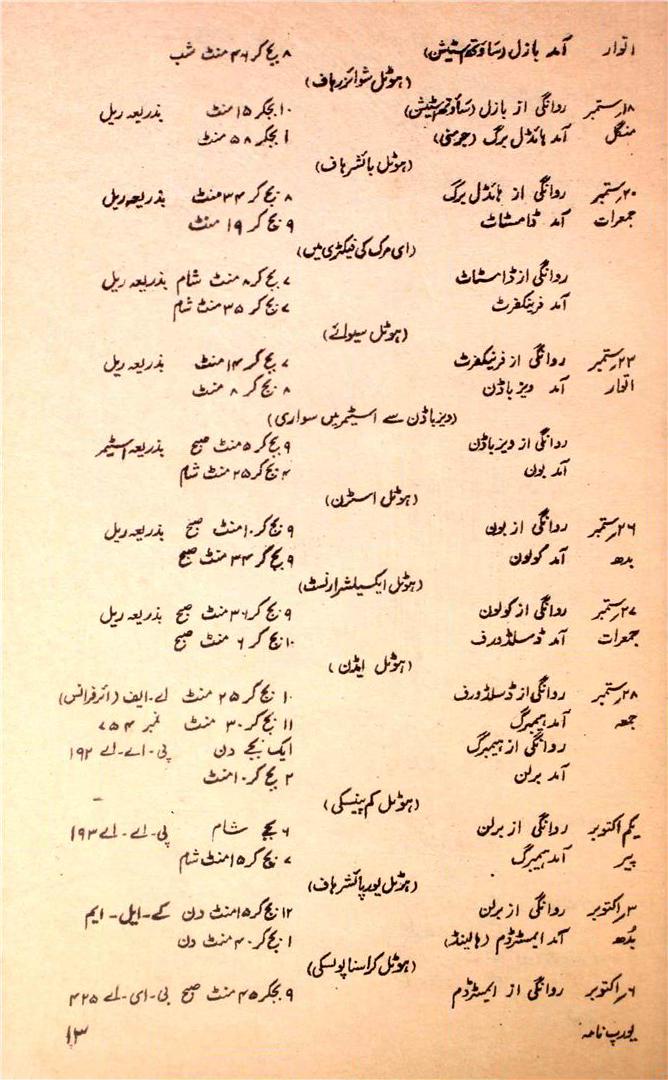 اتوار آمد بازل (ساوتھ اسٹیشن) ۸ بج کر ۴۶ منٹ شب
(ہوٹل شوائزر ہاف)
۱۸ ستمبر روانگی از بازل (ساؤتھ اسٹیشن) ۱۰ بجکر ۱۵ منٹ بذریعہ ریل
منگل آمد ہائڈل برگ (جرمنی) ۱ بجکر ۵۸ منٹ
(ہوٹل بائشر ہاف)
۲۰ ستمبر روانگی از ہائڈل برگ ۸ بج کر ۳۴ منٹ بذریعہ ریل
جمعرات آمد ڈامسٹاٹ ۹ بج کر ۱۹ منٹ
(ای مرک کی فیکٹری میں)
روانگی از ڈامسٹاٹ ۷ بج کر ۸ منٹ شام بذریعہ ریل
آمد فرینکفرٹ ۷ بج کر ۳۵ منٹ شام
(ہوٹل سیوائے)
۲۳ ستمبر روانگی از فرینکفرٹ ۷ بج کر ۱۴ منٹ بذریعہ ریل
اتوار آمد ویزباڈن ۸ بج کر ۸ منٹ
(ویزباڈن سے اسٹیمر میں سواری)
روانگی از ویزباڈن ۹ بج کر ۵ منٹ صبح بذریعہ اسٹیمر
آمد بون ۴ بج کر ۲۵ منٹ شام
(ہوٹل اسٹرن)
۲۶ ستمبر روانگی از بون ۹ بج کر ۱۰ منٹ صبح بذریعہ ریل
بدھ آمد کولون ۹ بج کر ۳۴ منٹ صبح
(ہوٹل ایکسیلشر ارنسٹ)
۲۷ ستمبر روانگی از کولون ۹ بج کر ۳۶ منٹ صبح بذریعہ ریل
جمعرات آمد ڈسلڈورف ۱۰ بج کر ۶ منٹ صبح
(ہوٹل ایڈن)
۲۸ ستمبر روانگی از ڈسلڈورف ۱۰ بج کر ۲۵ منٹ اے۔ایف (ائر فرانس)
جمعہ آمد ہیمبرگ ۱۱ بج کر ۳۰ منٹ نمبر ۷۵۴
روانگی از ہیمبرگ ایک بجے دن پی۔اے۔اے ۱۹۲
آمد برلن ۲ بج کر ۱۰ منٹ
(ہوٹل کم پینسکی)
یکم اکتوبر روانگی از برلن ۶ بجے شام پی۔اے۔اے ۱۹۳
پیر آمد ہیمبرگ ۷ بج کر ۱۵ منٹ شام
(ہوٹل یورپائشر ہاف)
۳ اکتوبر روانگی از برلن ۱۲ بج کر ۱۵ منٹ دن کے۔ایل۔ایم
بُدھ آمد ایمسٹرڈم (ہالینڈ) ۱ بج کر ۴۰ منٹ دن
(ہوٹل کراسنا پولسکی)
۶ اکتوبر روانگی از ایمسٹرڈم ۹ بجکر ۴۵ منٹ صبح بی۔ای۔اے ۴۲۵
یورپ نامہ ۱۳